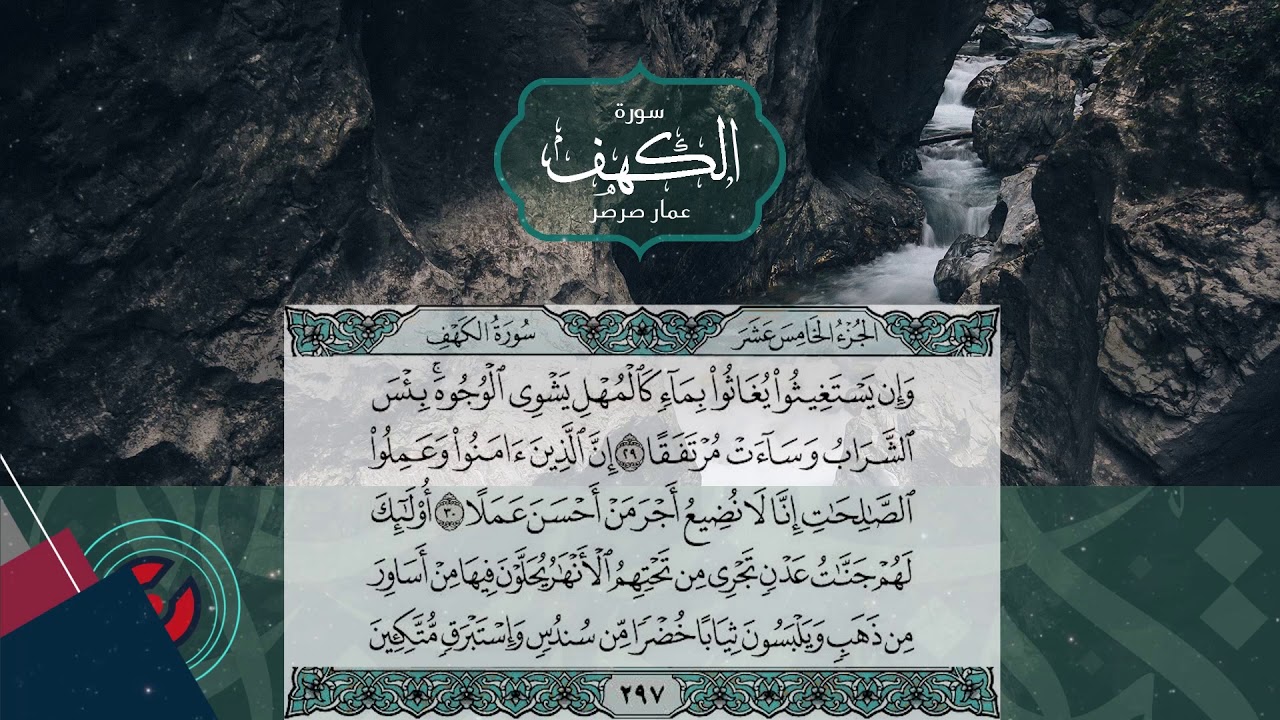 سورة
الكهف
عمار صرصر
الجزء الخامس عشر سورة الكهف
وَإِن يَسْتَغِيثُوا۟ يُغَاثُوا۟ بِمَآءٍ كَٱلْمُهْلِ يَشْوِى ٱلْوُجُوهَ ۚ بِئْسَ
ٱلشَّرَابُ وَسَآءَتْ مُرْتَفَقًا ٢٩ إِنَّ ٱلَّذِينَ ءَامَنُوا۟ وَعَمِلُوا۟
ٱلصَّٰلِحَٰتِ إِنَّا لَا نُضِيعُ أَجْرَ مَنْ أَحْسَنَ عَمَلًا ٣٠ أُو۟لَٰٓئِكَ
لَهُمْ جَنَّٰتُ عَدْنٍ تَجْرِى مِن تَحْتِهِمُ ٱلْأَنْهَٰرُ يُحَلَّوْنَ فِيهَا مِنْ أَسَاوِرَ
مِن ذَهَبٍ وَيَلْبَسُونَ ثِيَابًا خُضْرًا مِّن سُندُسٍ وَإِسْتَبْرَقٍ مُّتَّكِـِٔينَ
٢٩٧